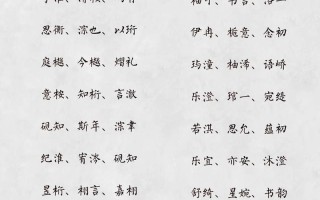 思衡、淙也、以珩
庭樾、今樾、熠礼
意桉、知桁、言澈
砚知、斯年、淙聿
纪淮、宥涔、砚知
昱桁、相言、嘉栩
伊冉、栀意、念初
玙潼、柚浠、语峤
乐澄、琯一、宛缇
若淇、思允、蕴初
乐宜、亦安、沐澄
舒绮、星婉、书韵